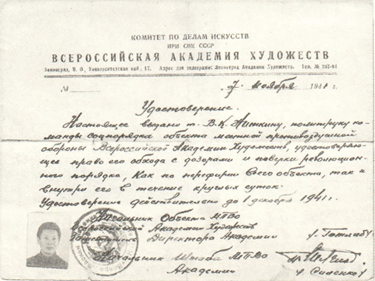 КОМИТЕТ ПО ДЕЛАМ ИСКУССТВ
ПРИ СНК СССР
ВСЕРОССИЙСКАЯ АКАДЕМИЯ ХУДОЖЕСТВ
№ 7 ноября 1941 г.
Удостоверение.
Настоящее выдано т. В.К. политруку ко-
манды соцпорядка объекта местной противовоздушной
обороны Всероссийской Академии Художеств, удостоверяю-
щее право его обхода с дозорами и поверки революцион-
ного порядка, как по периферии всего объекта, так и
внутри его в течение круглых суток.
Удостоверение действительно до 1 декабря 1941.
Начальник Объекта МПВО
Всероссийской Академии Художеств
Директора Академии
Начальник Штаба МПВО
Академии